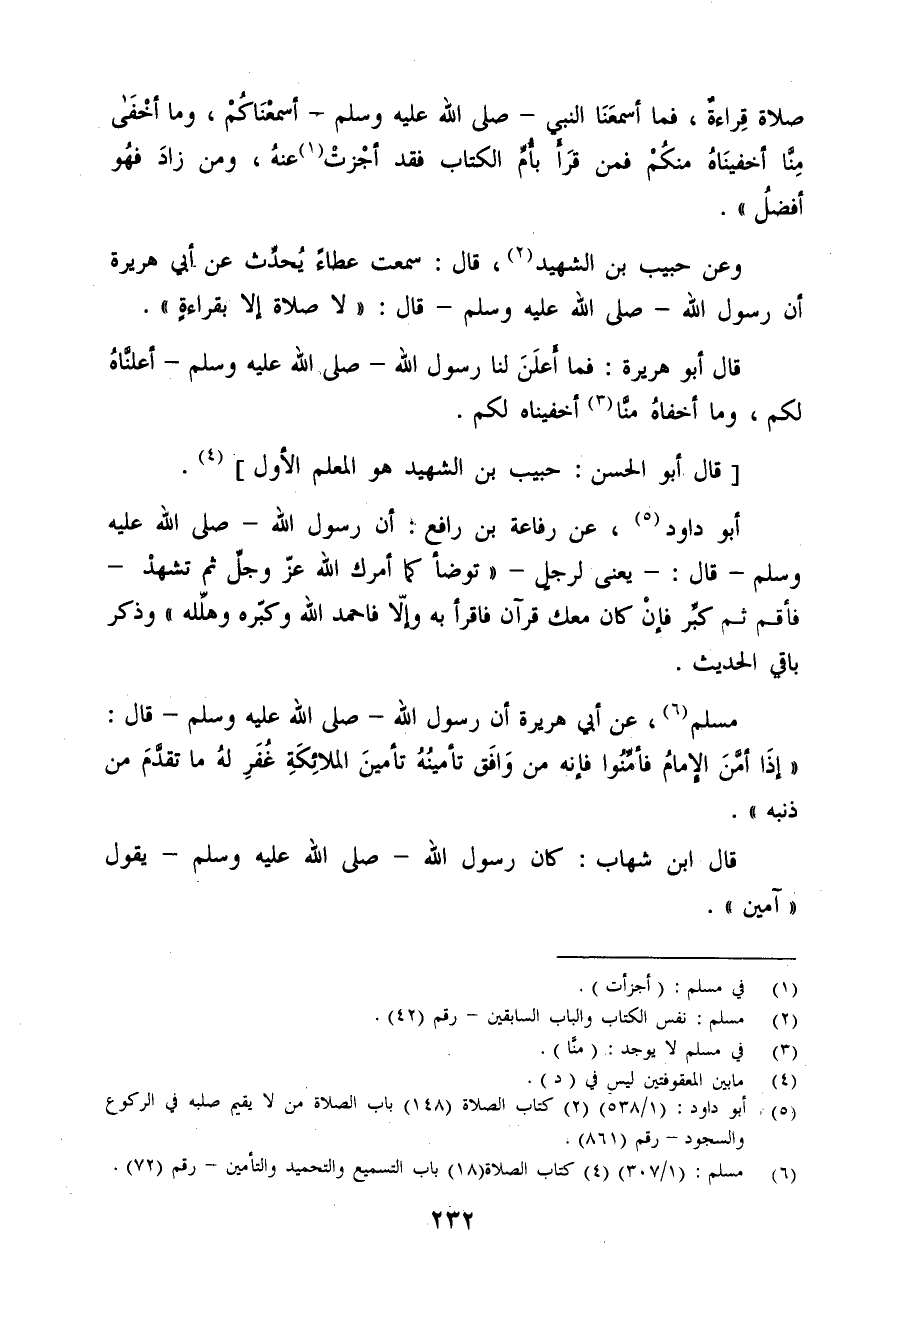 صلاة قِراءةٌ ، فما أسمعَنَا النبي – صلى الله عليه وسلم – أسمعْنَاكُمْ ، وما أخْفَىٰ
مِنَّا أخفينَاهُ منكُمْ فمن قرَأَ بأُمِّ الكتاب فقد أجْزتْ(١) عنهُ ، ومن زادَ فهُو
أفضلُ » .
وعن حبيب بن الشهيد(٢) ، قال : سمعت عطاءً يُحدِّث عن أبي هريرة
أن رسول الله – صلى الله عليه وسلم – قال : « لا صلاة إلا بقراءةٍ » .
قال أبو هريرة : فما أَعلَنَ لنا رسول الله – صلى الله عليه وسلم – أعلنَّاهُ
لكم ، وما أخفاهُ منَّا(٣) أخفيناه لكم .
[ قال أبو الحسن : حبيب بن الشهيد هو المعلم الأول ] (٤) .
أبو داود(٥) ، عن رفاعة بن رافع : أن رسول الله – صلى الله عليه
وسلم – قال : – يعنى لرجلٍ – « توضأ كما أمرك الله عزّ وجلّ ثم تشهدْ –
فأقـم ثـم كبِّر فإنْ كان معك قرآن فاقرأ به وإلّا فاحمد الله وكبّره وهلّله » وذكر
باقي الحديث .
مسلم(٦) ، عن أبي هريرة أن رسول الله – صلى الله عليه وسلم – قال :
« إذَا أمَّنَ الإمامُ فأمِّنُوا فإنه من وَافَق تأمينُهُ تأمينَ الملائِكَةِ غُفَرِ لهُ ما تقدَّمَ من
ذنبه » .
قال ابن شهاب : كان رسول الله – صلى الله عليه وسلم – يقول
« آمين » .
(١) في مسلم : ( أجزأت ) .
(٢) مسلم : نفس الكتاب والباب السابقين – رقم (٤٢) .
(٣) في مسلم لا يوجد : ( منَّا ) .
(٤) مابين المعقوفتين ليس في ( د ) .
(٥) أبو داود : (٥٣٨/١) (٢) كتاب الصلاة (١٤٨) باب الصلاة من لا يقيم صلبه في الركوع
والسجود – رقم (٨٦١) .
(٦) مسلم : (٣٠٧/١) (٤) كتاب الصلاة(١٨) باب التسميع والتحميد والتأمين – رقم (٧٢) .
٢٣٢